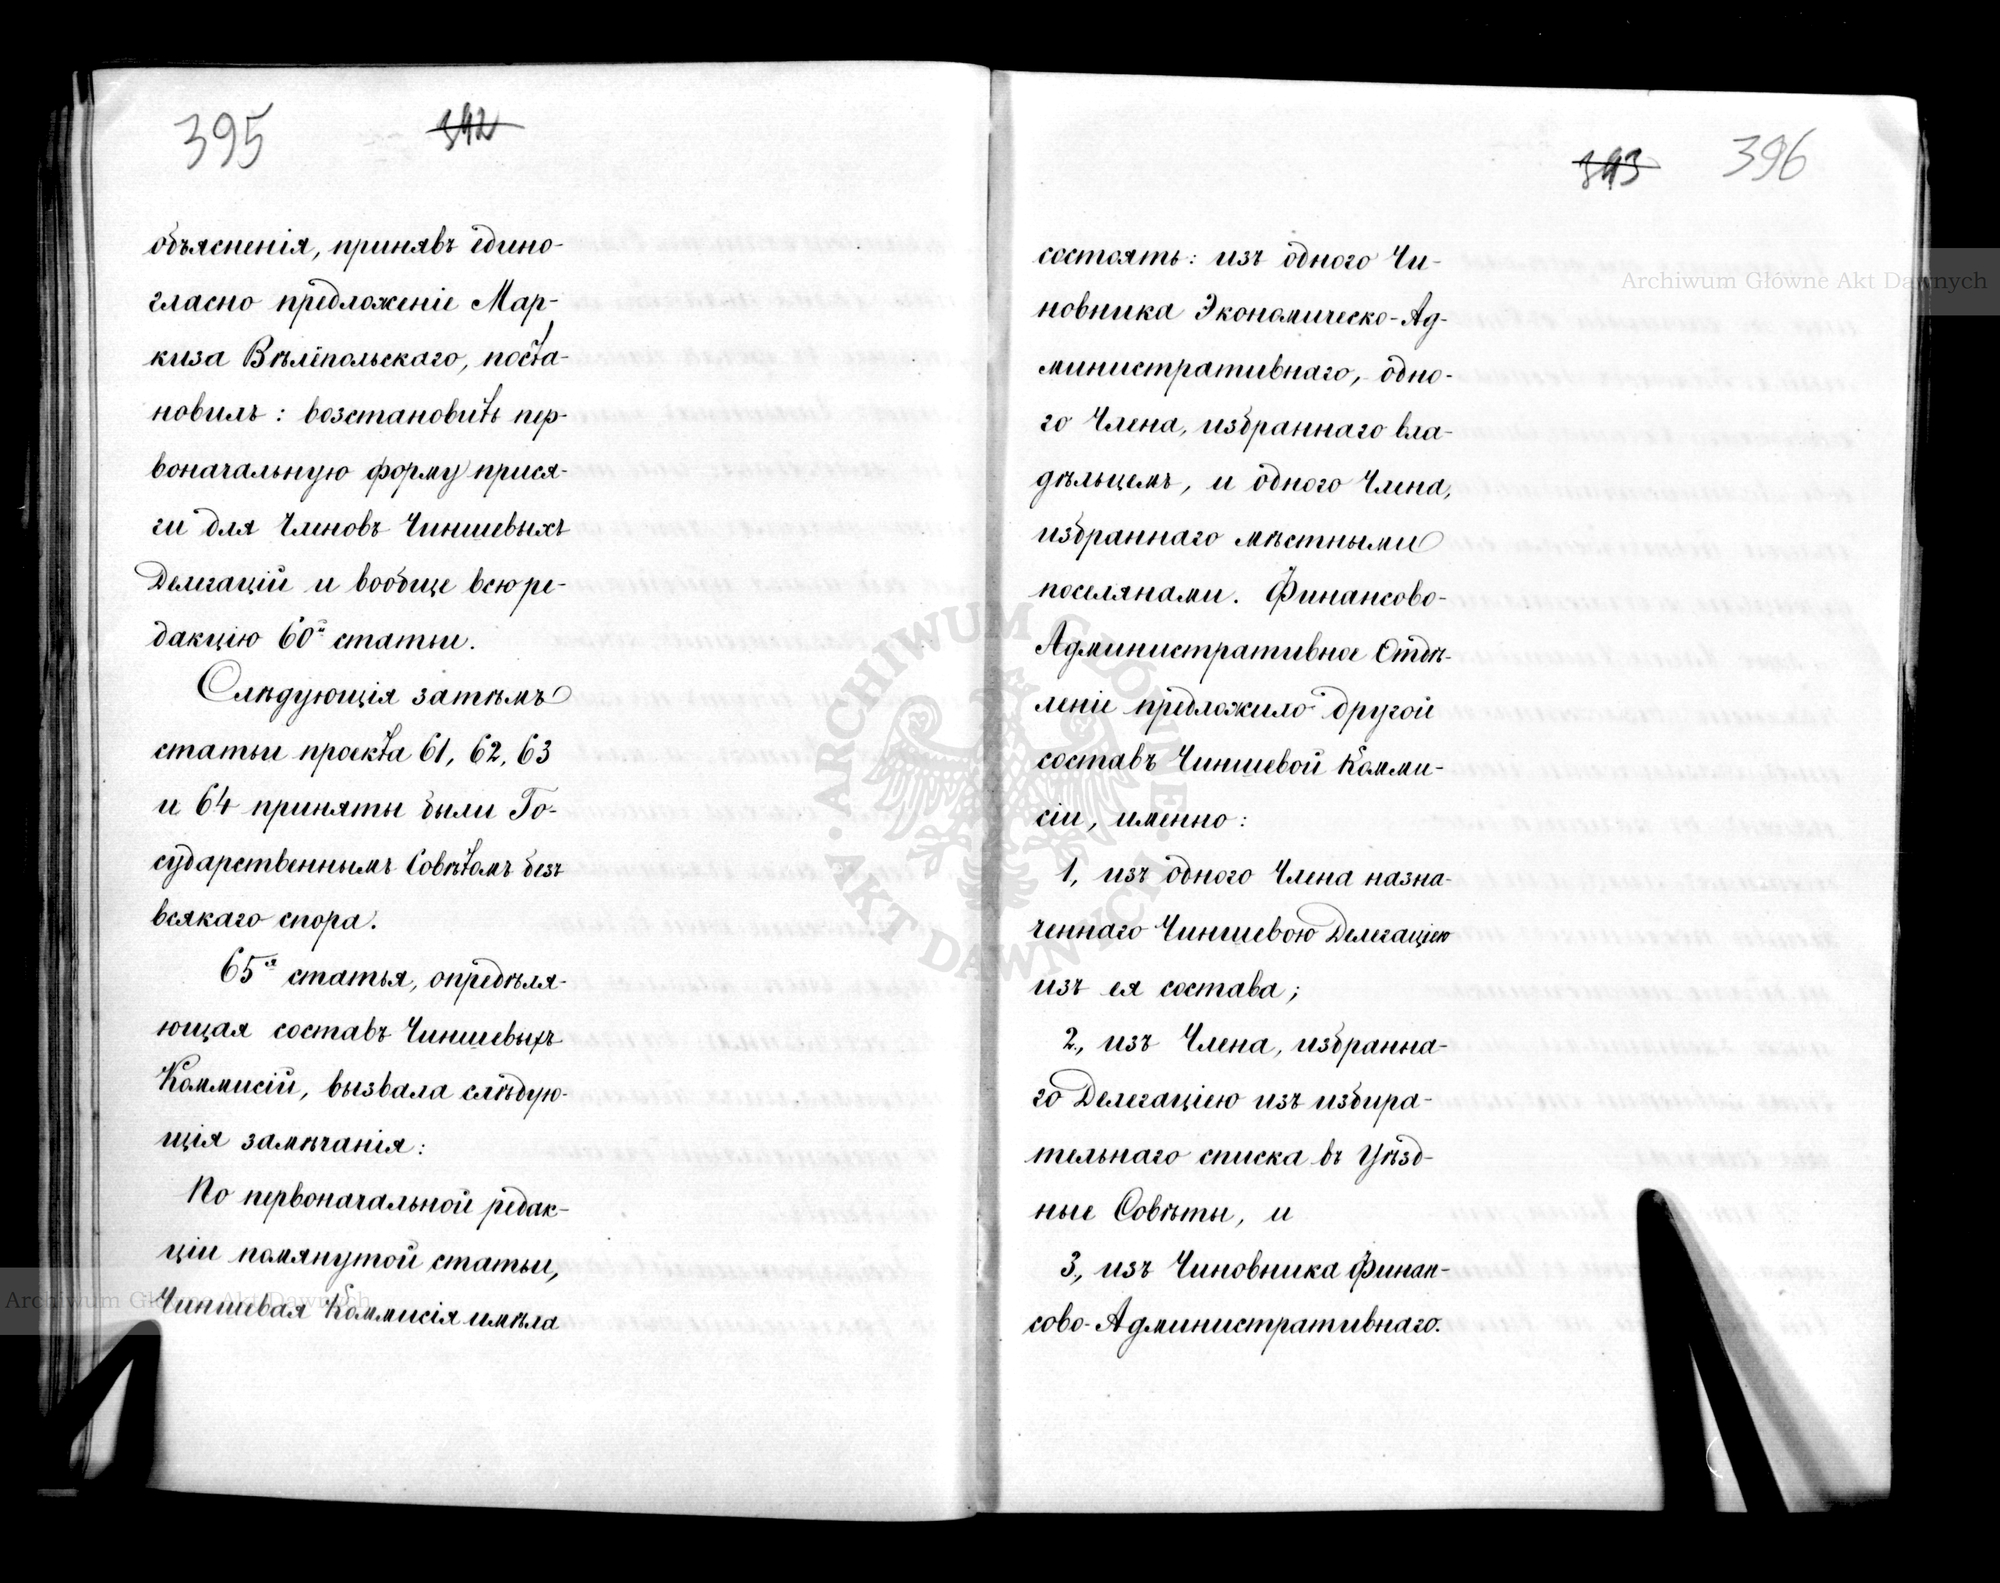 395 392
объясненія, принявъ едино-
гласно предложеніе Мар-
киза Вѣлёпольскаго, поста-
новилъ: возстановить пер-
воначальную форму прися-
ги для Членовъ Чиншевыхъ
Делегацій и вообще всю ре-
дакцію 60й статьи.
Слѣдующія затѣмъ
статьи проекта 61, 62, 63
и 64 приняты были Го-
сударственнымъ Совѣтомъ безъ
всякаго спора.
65я статья, опредѣля-
ющая составъ Чиншевыхъ
Коммисій, вызвала слѣдую-
щія замѣчанія:
По первоначальной редак-
ціи помянутой статьи,
Чиншевая Коммисія имѣла
393 396
состоять: изъ одного Чи-
новника Экономическо-Ад-
министративнаго, одно-
го Члена, избраннаго вла-
дѣльцемъ, и одного Члена,
избраннаго мѣстными
поселянами. Финансово-
Административное Отдѣ-
леніе предложило другой
составъ Чиншевой Комми-
сіи, именно:
1, изъ одного Члена назна-
ченнаго Чиншевою Делегаціею
изъ ея состава;
2, изъ Члена, избранна-
го Делегаціею изъ избира-
тельнаго списка въ Уѣзд-
ные Совѣты, и
3, изъ Чиновника Финан-
сово-Административнаго.
Archiwum Główne Akt Dawnych
Archiwum Główne Akt Dawnych
ARCHIWUM GŁÓWNE AKT DAWNYCH